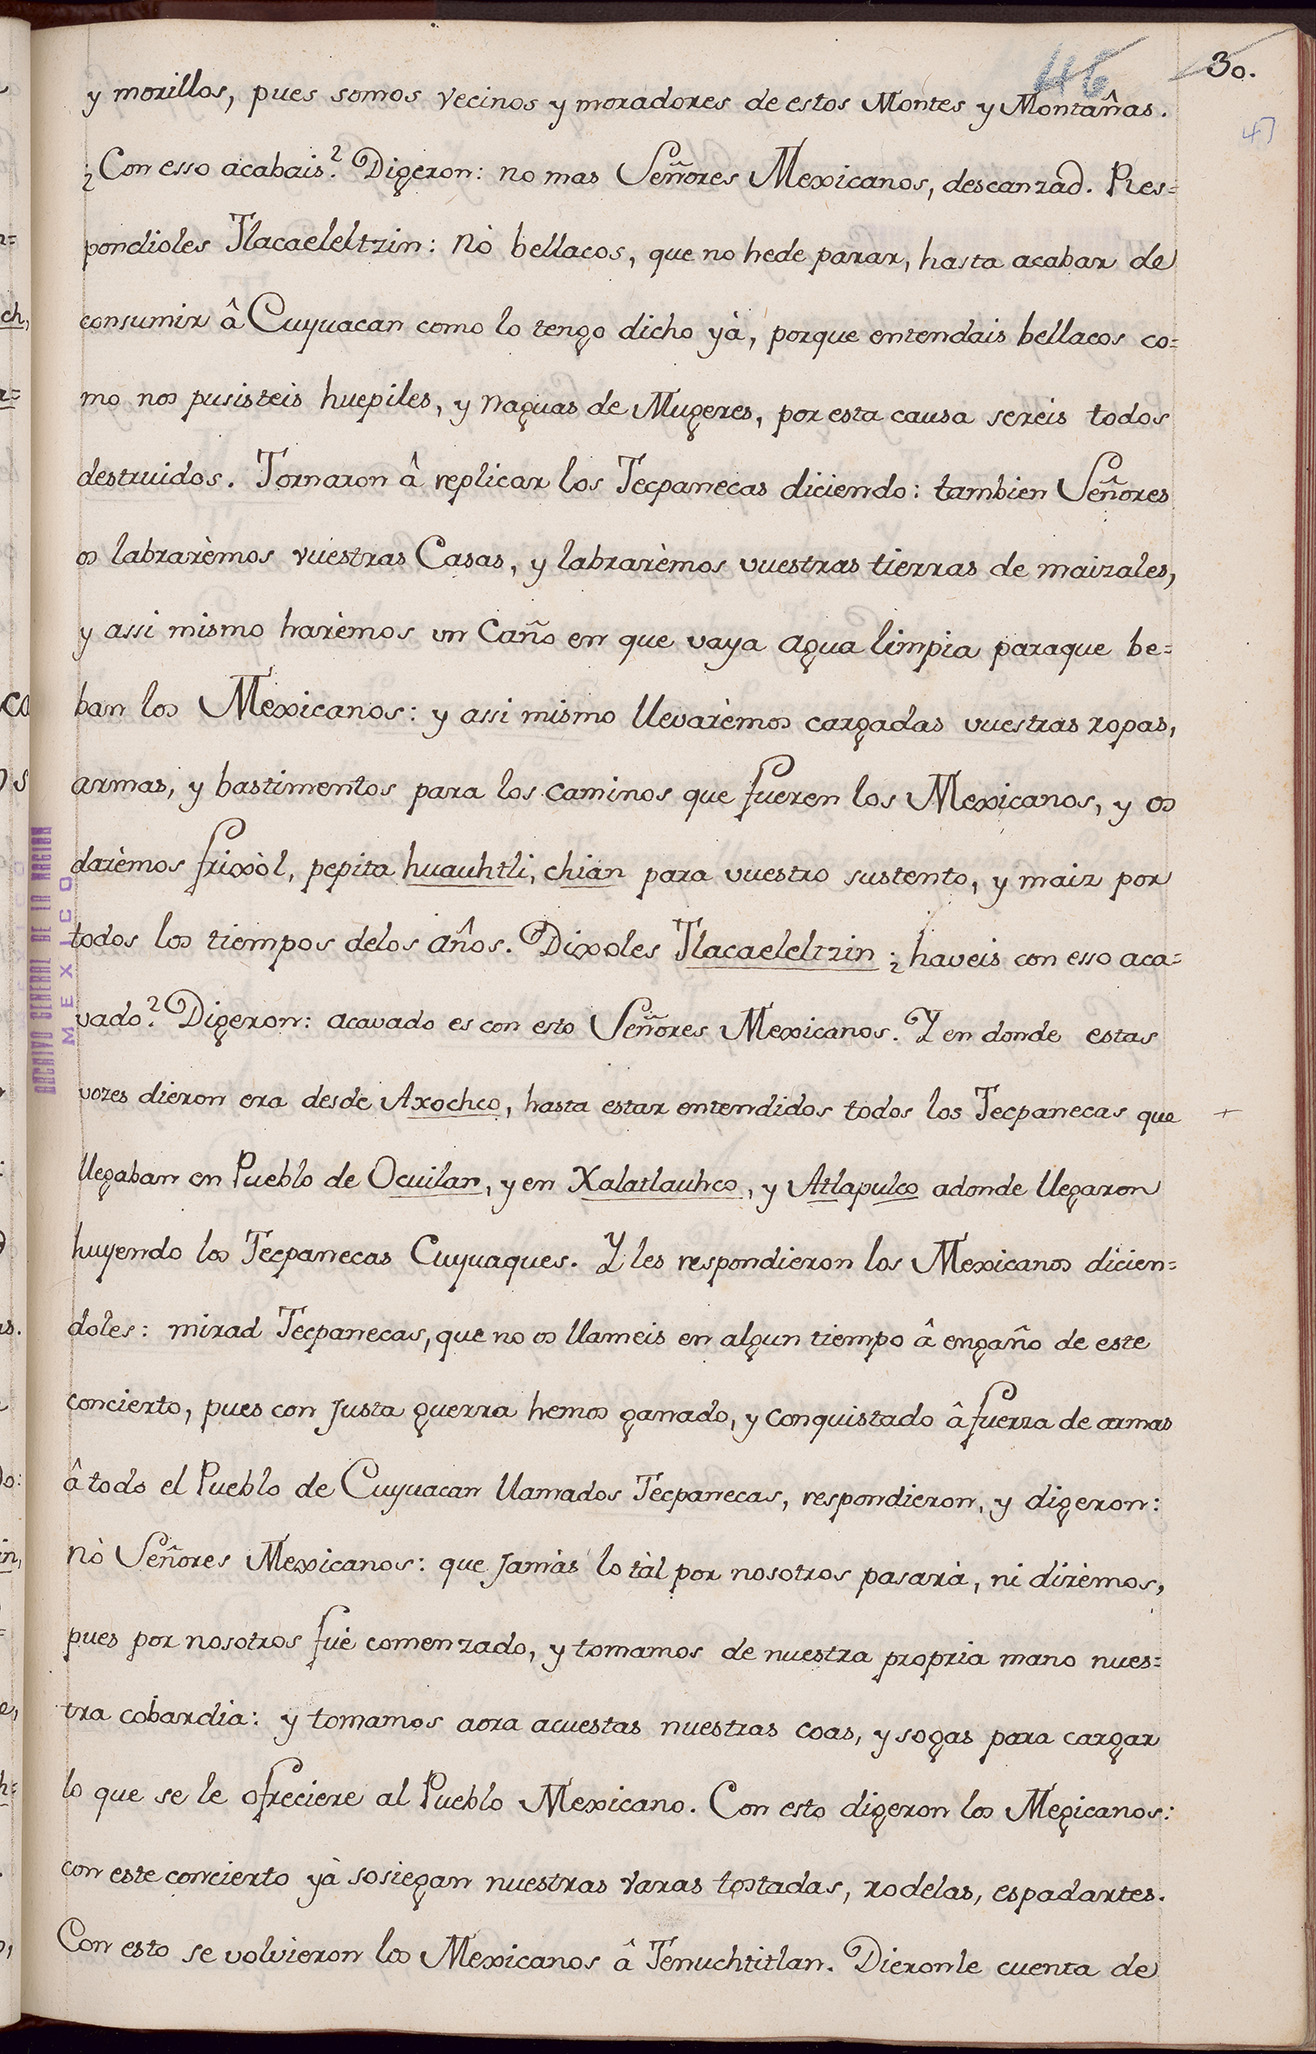 46
30.
47
y morillos, pues somos vecinos y moradores de estos Montes y Montañas.
¿Con esso acabais? Digeron: no mas Señores Mexicanos, descanzad. Res=
pondioles Tlacaeleltzin: nò bellacos, que no hede parar, hasta acabar de
consumir â Cuyuacan como lo tengo dicho yà, porque entendais bellacos co=
mo nos pusisteis huepiles, y naguas de Mugeres, por esta causa sereis todos
destruidos. Tornaron â replicar los Tecpanecas diciendo: tambien Señores
os labrarèmos vuestras Casas, y labrarèmos vuestras tierras de maizales,
y assi mismo harèmos un Caño en que vaya agua limpia paraque be=
ban los Mexicanos: y assi mismo llevarèmos cargadas vuestras ropas,
armas, y bastimentos para los caminos que fueren los Mexicanos, y os
darèmos frixòl, pepita huauhtli, chian para vuestro sustento, y maiz por
todos los tiempos delos años. Dixoles Tlacaeleltzin ¿haveis con esso aca=
vado? Digeron: acavado es con esto Señores Mexicanos. Y en donde estas
vozes dieron era desde Axochco, hasta estar entendidos todos los Tecpanecas que +
llegaban en Pueblo de Ocuilan, y en Xalatlauhco, y Atlapulco adonde llegaron
huyendo los Tecpanecas Cuyuaques. Y les respondieron los Mexicanos dicien=
doles: mirad Tecpanecas, que no os llameis en algun tiempo â engaño de este
concierto, pues con justa guerra hemos ganado, y conquistado â fuerza de armas
â todo el Pueblo de Cuyuacan llamados Tecpanecas, respondieron, y digeron:
nò Señores Mexicanos: que jamàs lo tàl por nosotros pasarà, ni dirèmos,
pues por nosotros fuè comenzado, y tomamos de nuestra propria mano nues=
tra cobardia: y tomamos aora acuestas nuestras coas, y sogas para cargar
lo que se le ofreciere al Pueblo Mexicano. Con esto digeron los Megicanos:
con este concierto yà sosiegan nuestras varas tostadas, rodelas, espadartes.
Con esto se volvieron los Mexicanos â Tenuchtitlan. Dieronle cuenta de
ARCHIVO GENERAL DE LA NACION
MEXICO